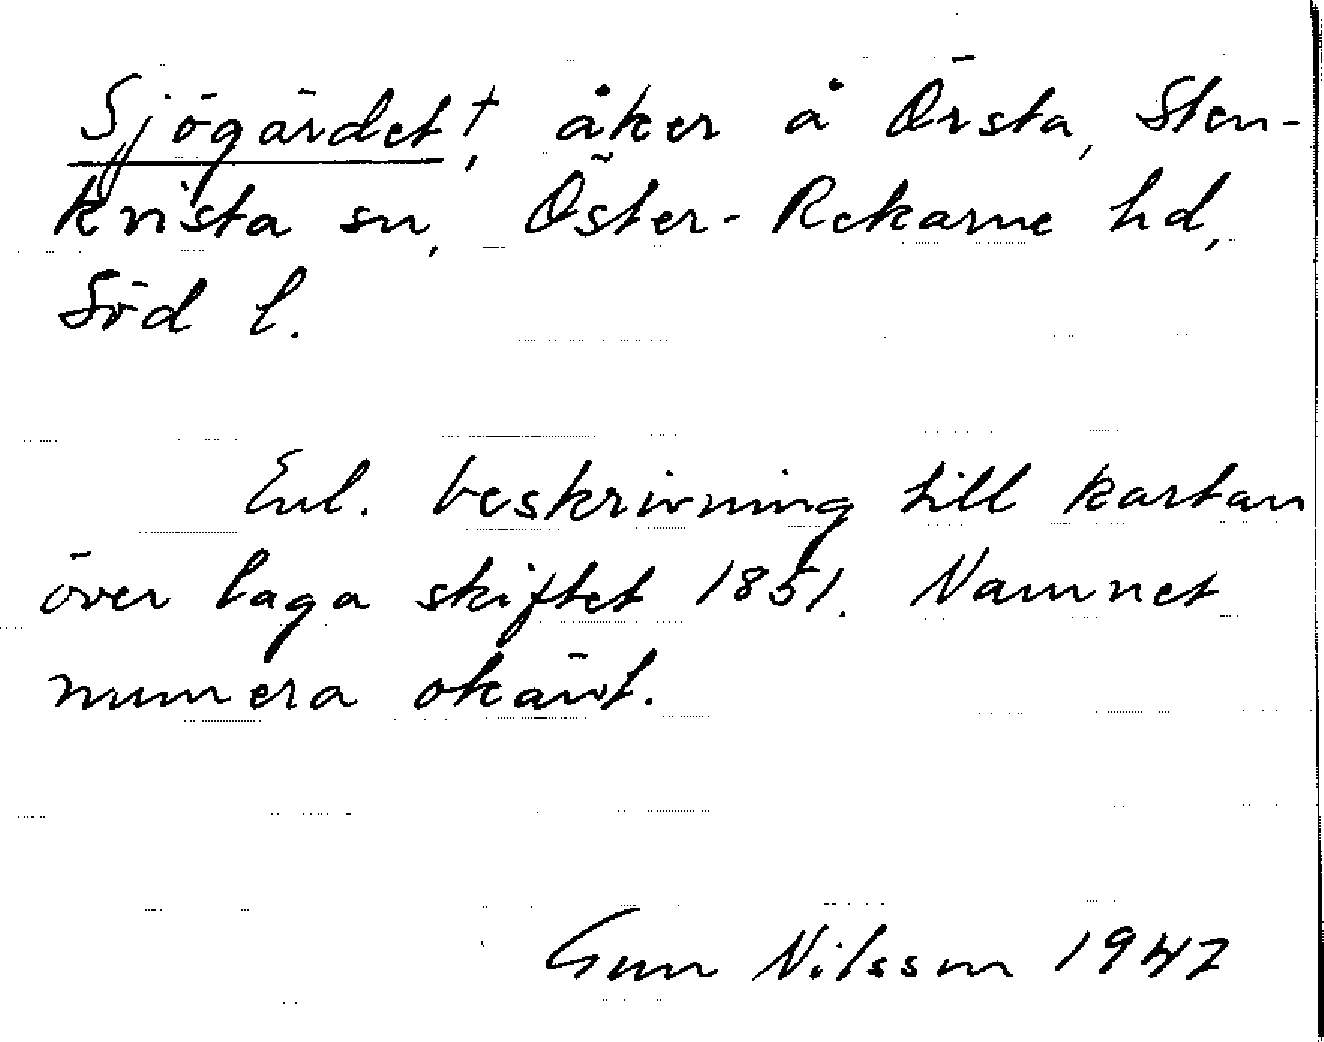 Sjögärdet†, åker å Örsta, Sten-
kvista sn, Öster-Rekarne hd,
Söd l.
Enl. beskrivning till kartan
över laga skiftet 1851. Namnet
numera okänt.
Gun Nilsson 1947